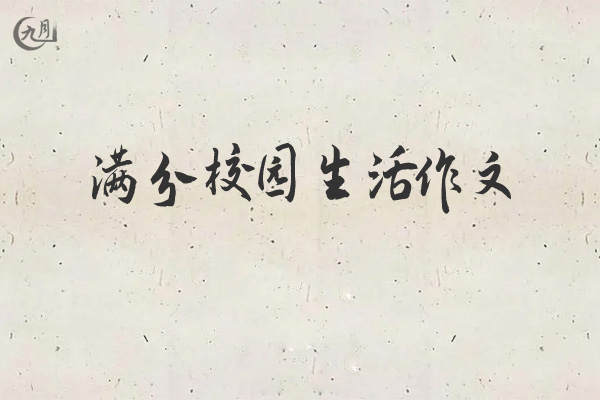 九月
满分校园生活作文